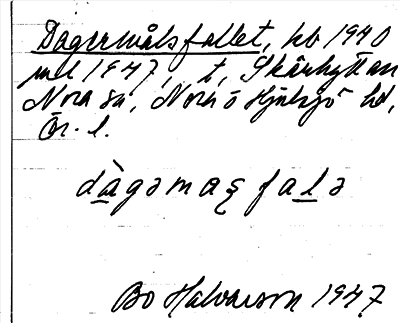 Dagermålsfallet, kb 1940
ml 1947, t, Skärhyttan
Nora sn, Nora o Hjulsjö hd,
Ör. l.
dàgəmaʂ falə
Bo Halvarson 1947